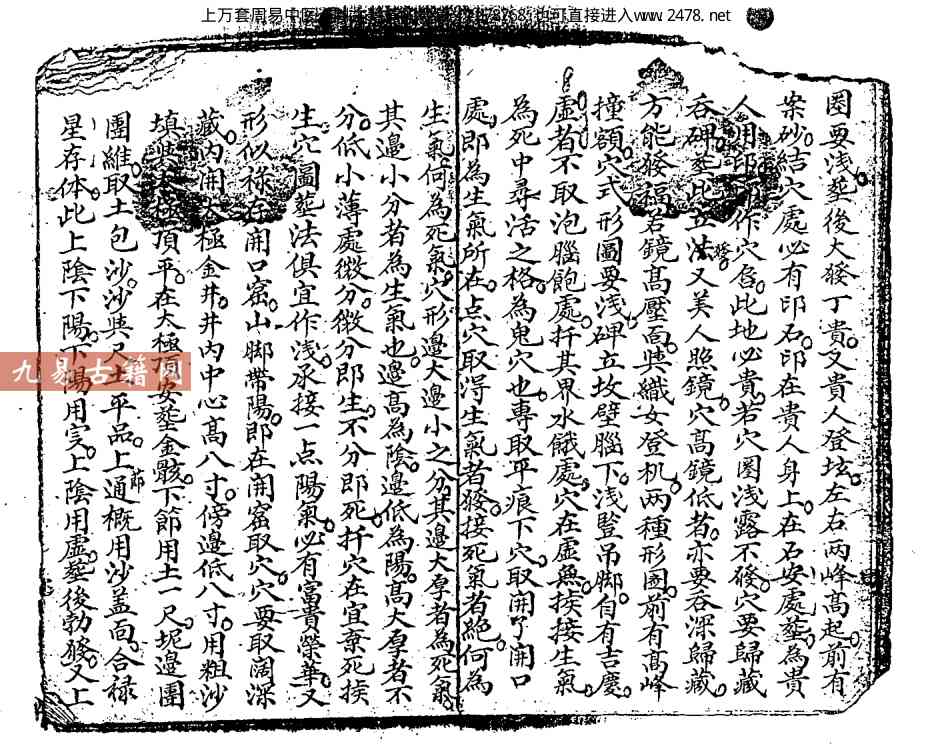 上万套周易中医 也可直接进入www.2478.net
圈要浅塟後大發丁貴又貴人登垓左右两峰髙起前有
案砂結穴處必有印石印在貴人身上在石安處塟為貴
人用印 作穴 此地必貴若穴圈浅露不發穴要歸藏
吞碑塟此立法又美人照鏡穴髙鏡低者亦要吞深歸藏
方能發福若鏡髙壓面與織女登机两種形圖前有髙峰
撞額穴式形圖要浅碑立坟壁腦下浅竪吊脚自有吉慶
虚者不取泡腦飽處扦其界水餓處穴在虚魚挨接生氣
為死中尋活之格為鬼穴也專取平痕下穴取開了開口
處即為生氣所在点穴取淂生氣者發接死氣者絶何為
生氣何為死氣穴形邊大邊小之分其邊大厚者為死氣
其邊小分者為生氣也邊髙為陰邊低為陽髙大厚者不
分低小薄處微分微分即生不分即死扦穴在宜棄死挨
生穴圖塟法俱宜作浅承接一点陽氣必有富貴榮華又
形似禄在開口窑山脚帶陽即在開窑取穴穴要取闊深
藏内開太極金井井内中心髙八寸傍邊低八寸用粗沙
填 極頂平在太極頂安塟金骸下節用土一尺坭邊圍
團維取土包沙沙與尺土平品上節通概用沙盖面合禄
星存体此上陰下陽下陽用实上陰用虚塟後勃發又上
九易古籍网